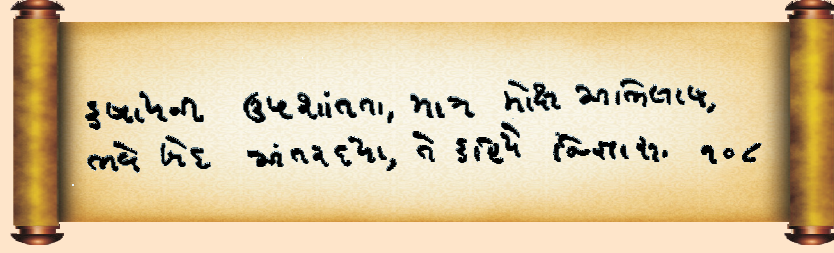 કષાયની ઉપશાંતતા, માત્ર મોક્ષ અભિલાષ,
ભવે ખેદ અંતરદયા, તે કહિયે જિજ્ઞાસ. ૧૦૮